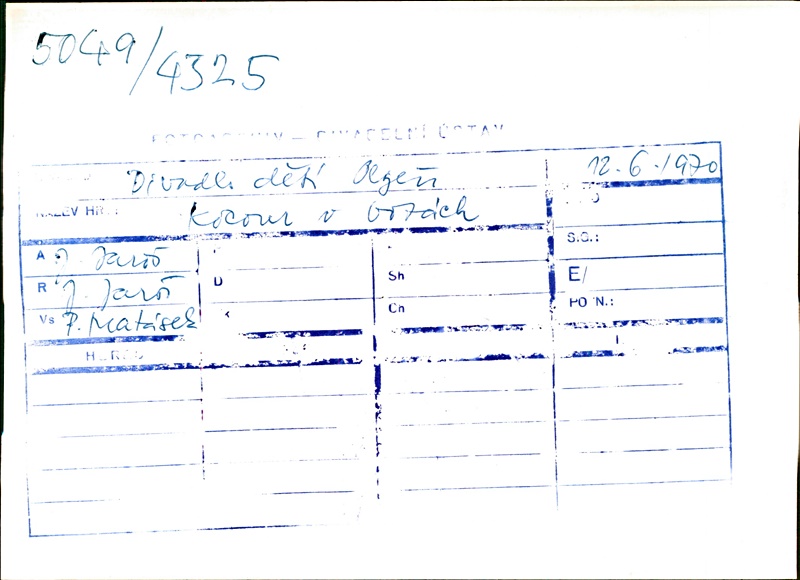 5049/4325
FOTOARCHIV – DIVADELNÍ ÚSTAV
Divadlo dětí Plzeň 12.6.1970
NÁZEV HRY: Kocour v botách
A J. Jaroš S.G.:
R J. Jaroš D Sh E/
Vs P. Matásek K Ch POZN.:
HEREC